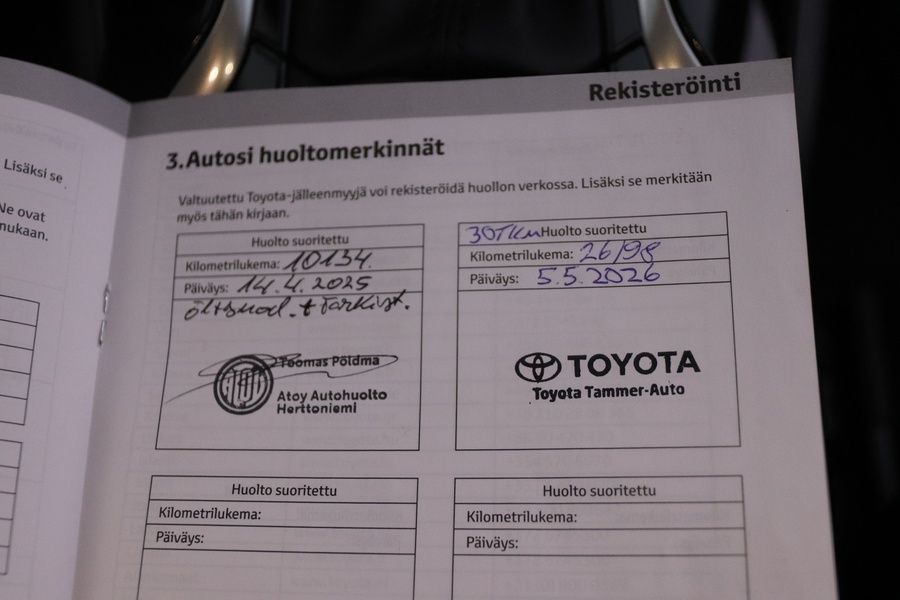 Lisäksi se
Ne ovat
mukaan.
Rekisteröinti
3. Autosi huoltomerkinnät
Valtuutettu Toyota-jälleenmyyjä voi rekisteröidä huollon verkossa. Lisäksi se merkitään
myös tähän kirjaan.
Huolto suoritettu
Kilometrilukema: 10134
Päiväys: 14.4.2025
+ Tarkist.
Toomas Põldma
Atoy Autohuolto
Herttoniemi
30TKm Huolto suoritettu
Kilometrilukema: 26198
Päiväys: 5.5.2026
TOYOTA
Toyota Tammer-Auto
Huolto suoritettu
Kilometrilukema:
Päiväys:
Huolto suoritettu
Kilometrilukema:
Päiväys: